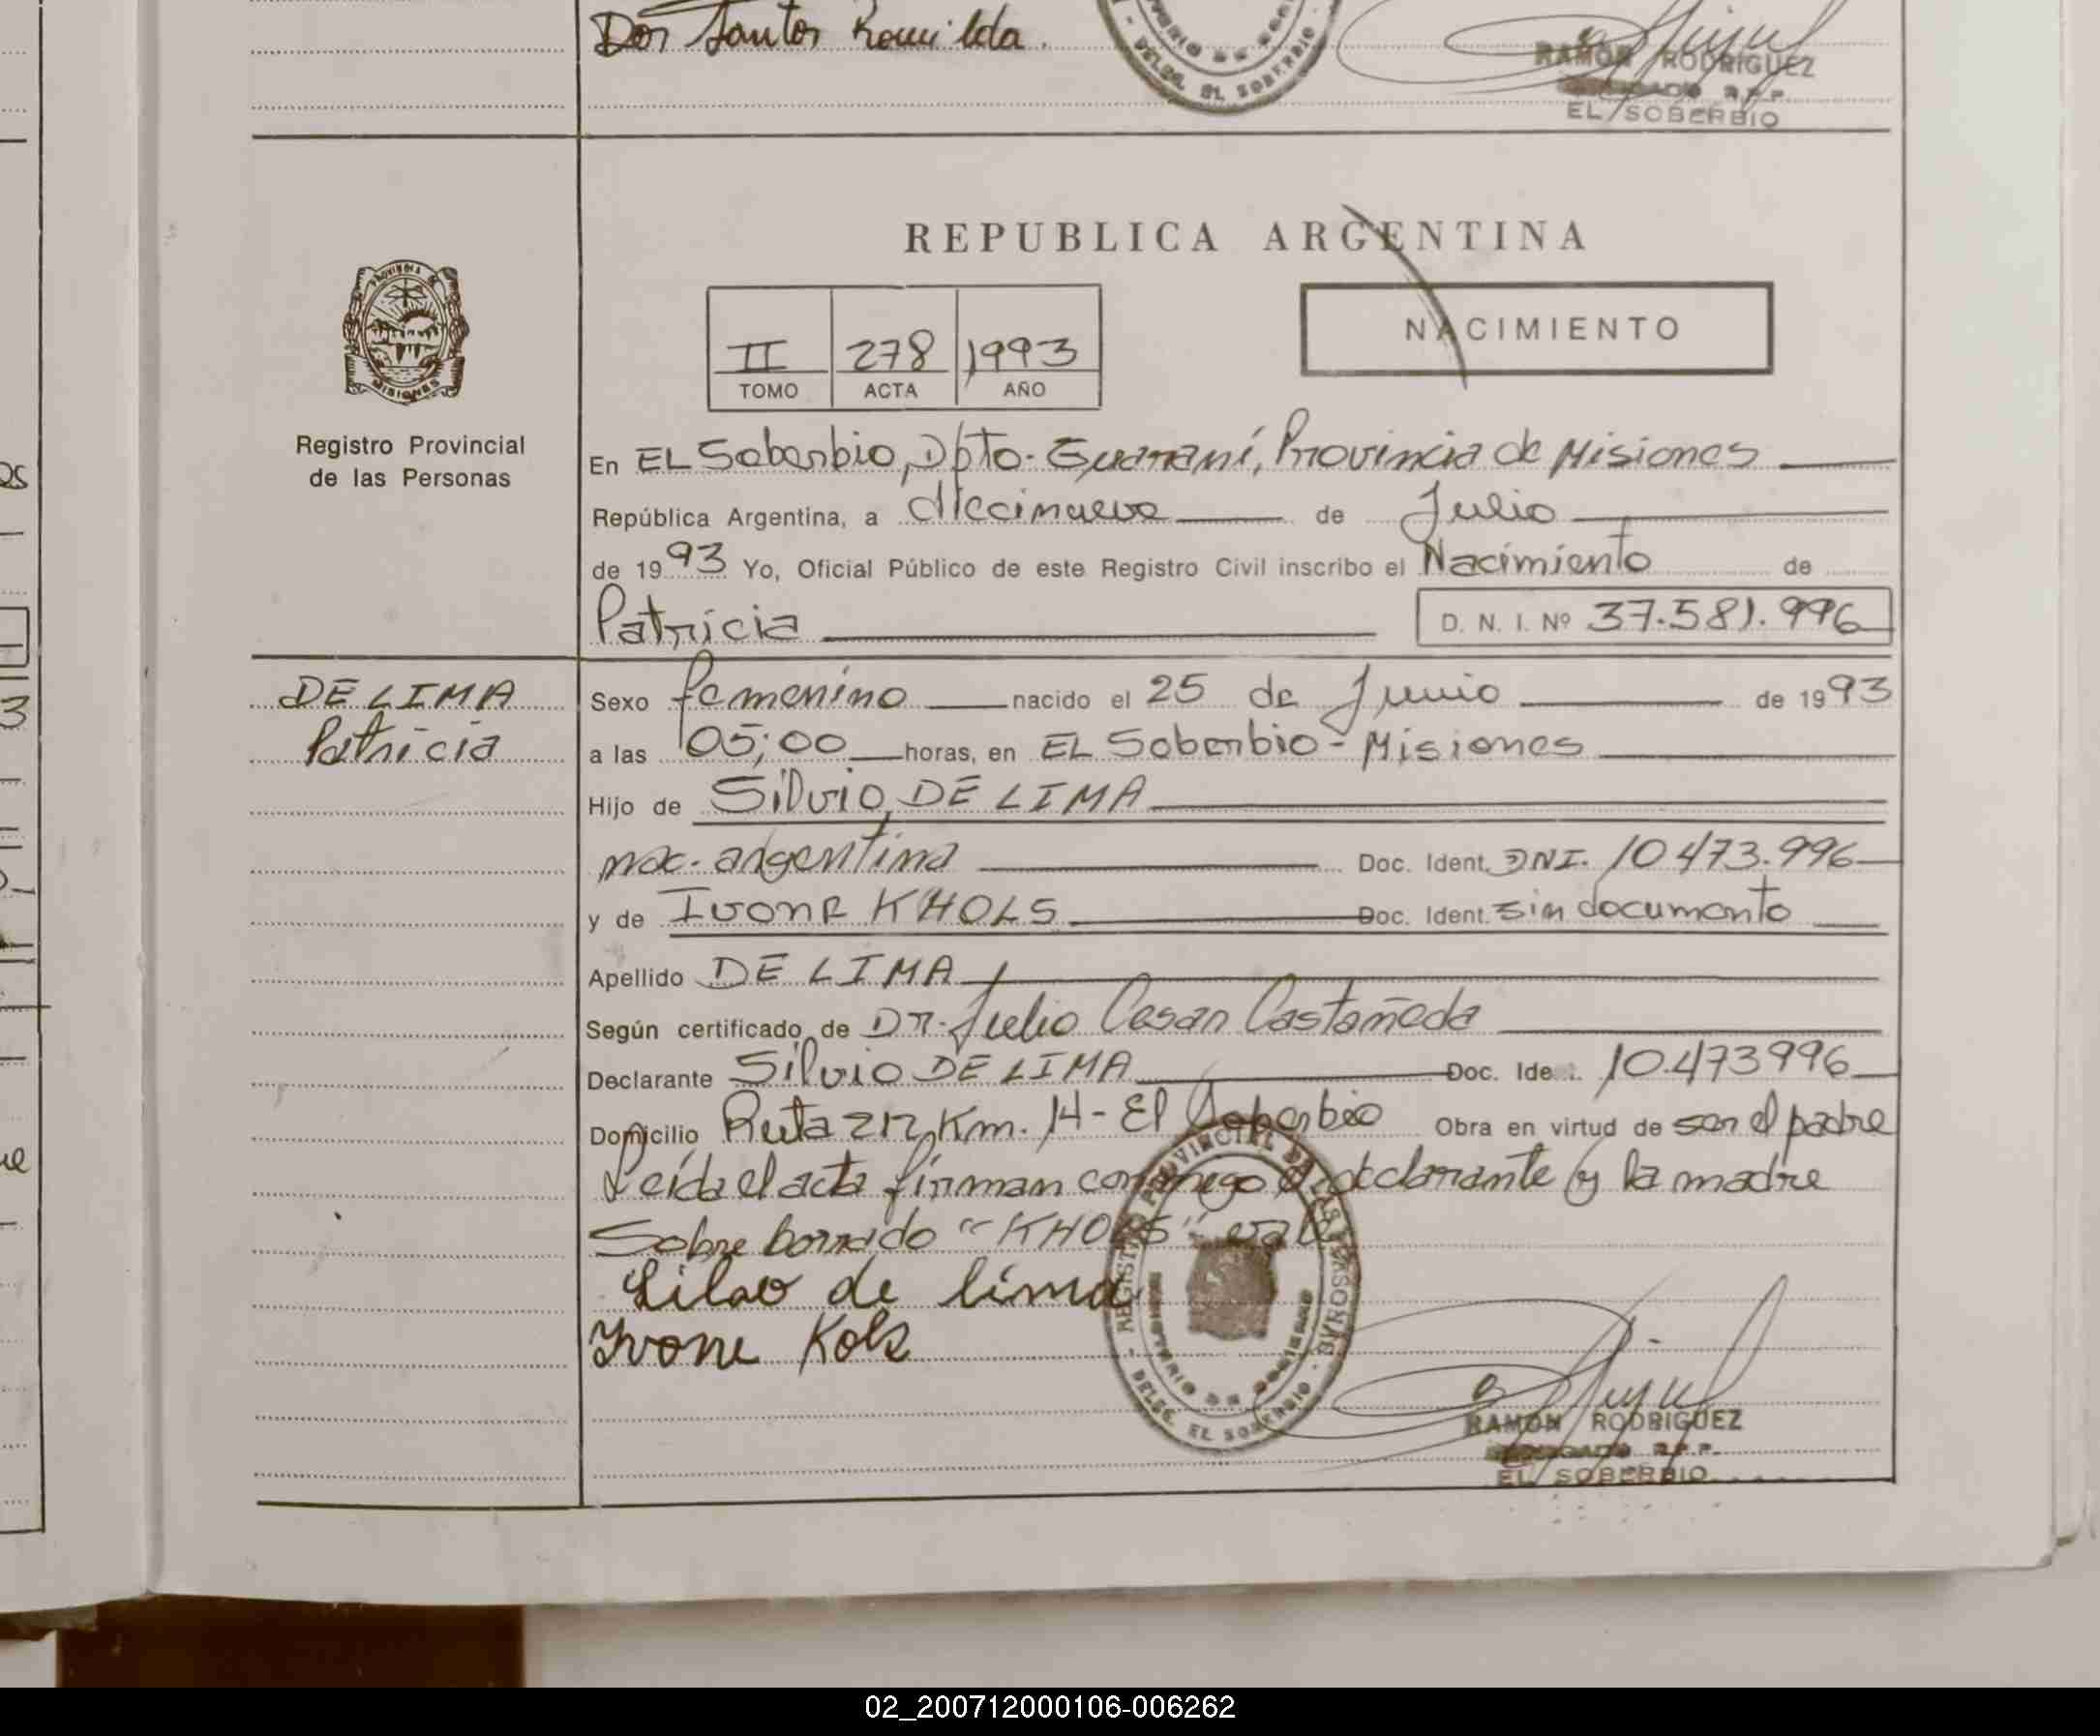 Dos Santos Romilda.
RAMON RODRIGUEZ
EL SOBERBIO
REPUBLICA ARGENTINA
II 278 1993
TOMO ACTA AÑO
NACIMIENTO
PROVINCIA
MISIONES
Registro Provincial
de las Personas
En EL Soberbio, Dpto. Guaraní, Provincia de Misiones
República Argentina, a diecinueve de Julio
de 1993 Yo, Oficial Público de este Registro Civil inscribo el Nacimiento de
Patricia D. N. I. Nº 37.581.996
DE LIMA
Patricia
Sexo femenino nacido el 25 de Junio de 1993
a las 05;00 horas, en EL Soberbio - Misiones
Hijo de Silvio DE LIMA
nac. argentina Doc. Ident. DNI. 10.473.996
y de Ivone KHOLS Doc. Ident. sin documento
Apellido DE LIMA
Según certificado de Dr. Julio Cesar Castañeda
Declarante Silvio DE LIMA Doc. Ide 10.473996
Domicilio Ruta 212 Km. 14 - El Soberbio Obra en virtud de ser el padre
Leída el acta firman conmigo el declarante y la madre
Sobre borrado "KHOLS" vale
Silvo de lima
Ivone Kols
REGISTRO PROVINCIAL DE LAS PERSONAS
MINISTERIO DE GOBIERNO
- DELEG. EL SOBERBIO -
RAMON RODRIGUEZ
R.P.P.
EL SOBERBIO
02_200712000106-006262